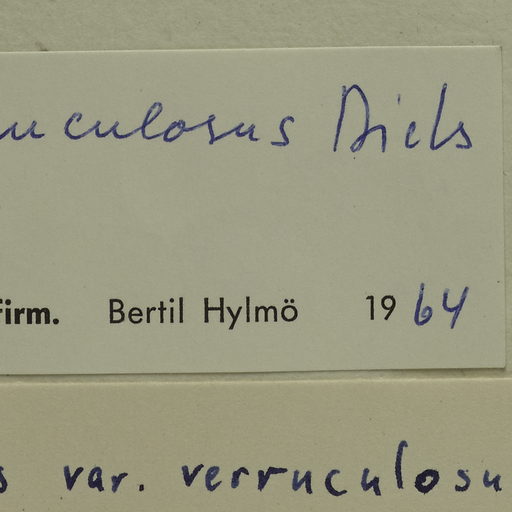 uculosus Diels
firm. Bertil Hylmö 19 64
s var. verruculosu